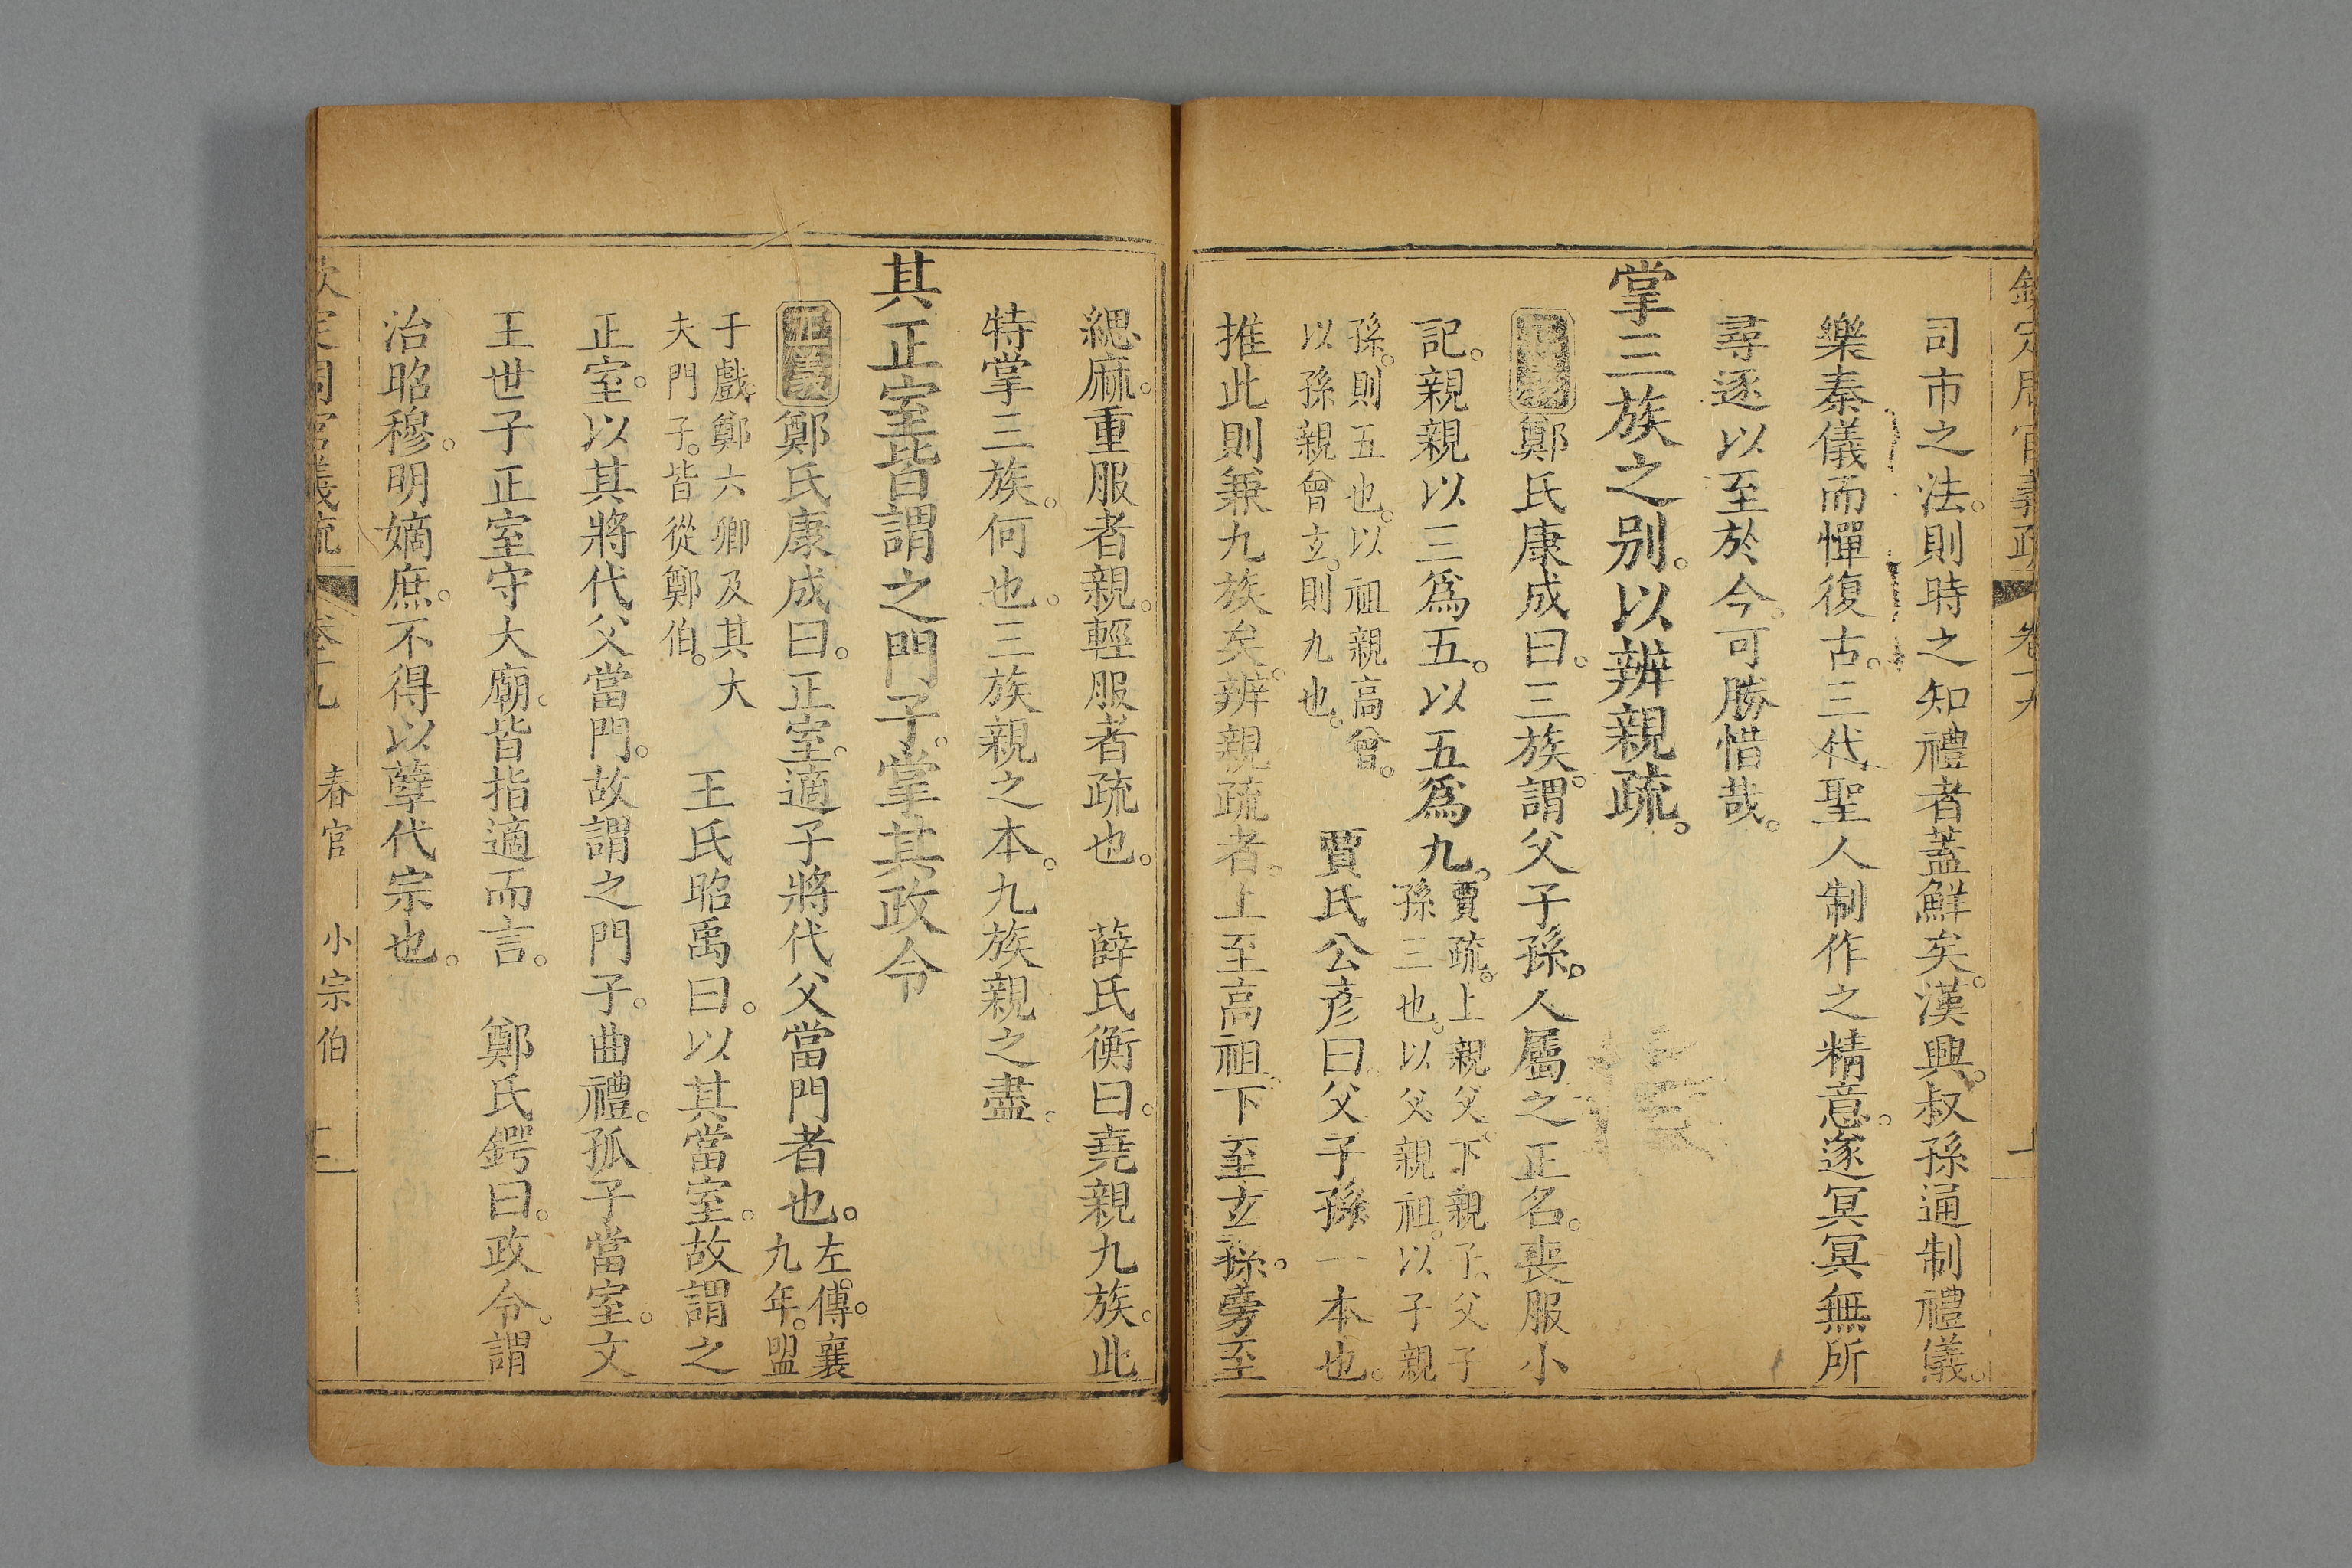 司市之法。則時之知禮者蓋鮮矣。漢興。叔孫通制禮儀。
樂秦儀而憚復古。三代聖人制作之精意。遂冥冥無所
尋逐以至於今。可勝惜哉。
掌三族之别。以辨親疏。
鄭氏康成曰。三族。謂父子孫。人屬之正名。喪服小
記。親親以三爲五。以五爲九。
賈疏。上親父。下親子。父子
孫三也。以父親祖。以子親
孫。則五也。以祖親高曾。
以孫親曾玄。則九也。
賈氏公彦曰。父子孫一本也。
推此則兼九族矣。辨親疏者。上至高祖。下至玄孫。旁至
緦麻。重服者親。輕服者疏也。 薛氏衡曰。堯親九族。此
特掌三族。何也。三族親之本。九族親之盡。
其正室皆謂之門子。掌其政令
正義鄭氏康成曰。正室。適子將代父當門者也。
左傳。襄
九年。盟
于戲。鄭六卿及其大
夫門子。皆從鄭伯。
王氏昭禹曰。以其當室。故謂之
正室。以其將代父當門。故謂之門子。曲禮。孤子當室。文
王世子正室守大廟。皆指適而言。 鄭氏鍔曰。政令。謂
治昭穆。明嫡庶。不得以孽代宗也。
欽定周官義疏 卷十九 春官 小宗伯